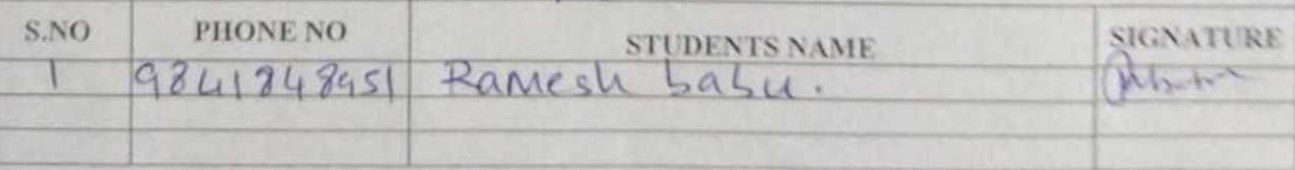 S.NO PHONE NO STUDENTS NAME SIGNATURE
1 9841848951 Ramesh babu.